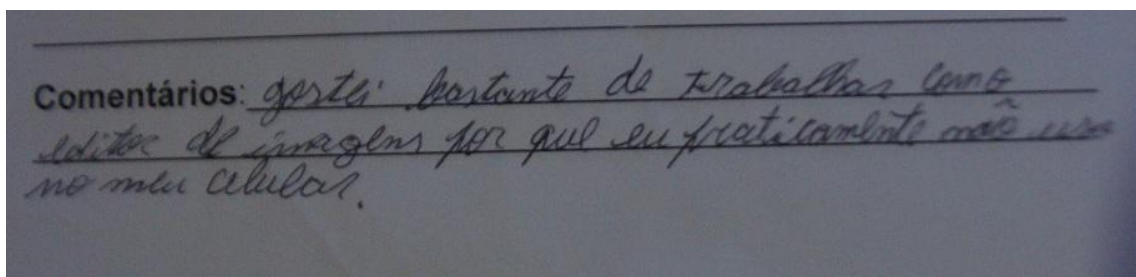 Comentários: gostei bastante de trabalhar como
editor de imagens por que eu praticamente não uso
no meu celular.